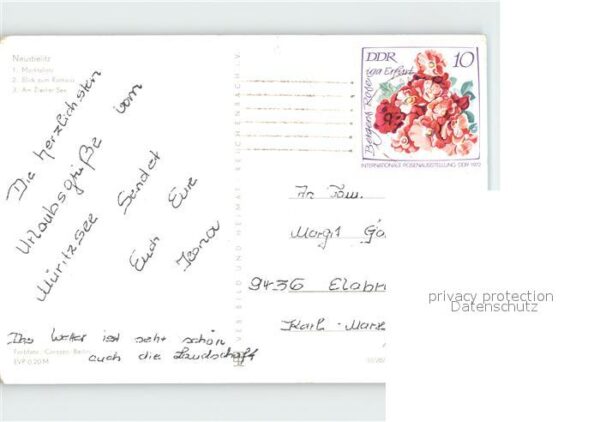 Neustrelitz
1. Marktplatz
2. Blick zum Rathaus
3. Am Zierker See
Die herzlichsten
Urlaubsgrüße vom
Müritzsee Sendet
Euch Eure
Ilona
Das Wetter ist seht schön
auch die Landschaft
Farbfoto: Darr Berlin
EVP 0,20 M
VERLAG BILD UND HEIMAT REICHENBACH i. V.
DDR 10
Bergers Rose
iga Erfurt
INTERNATIONALE ROSENAUSSTELLUNG DDR 1972
An Fam.
Margit
9436 Elabr
Karl-Marx
privacy protection
Datenschutz